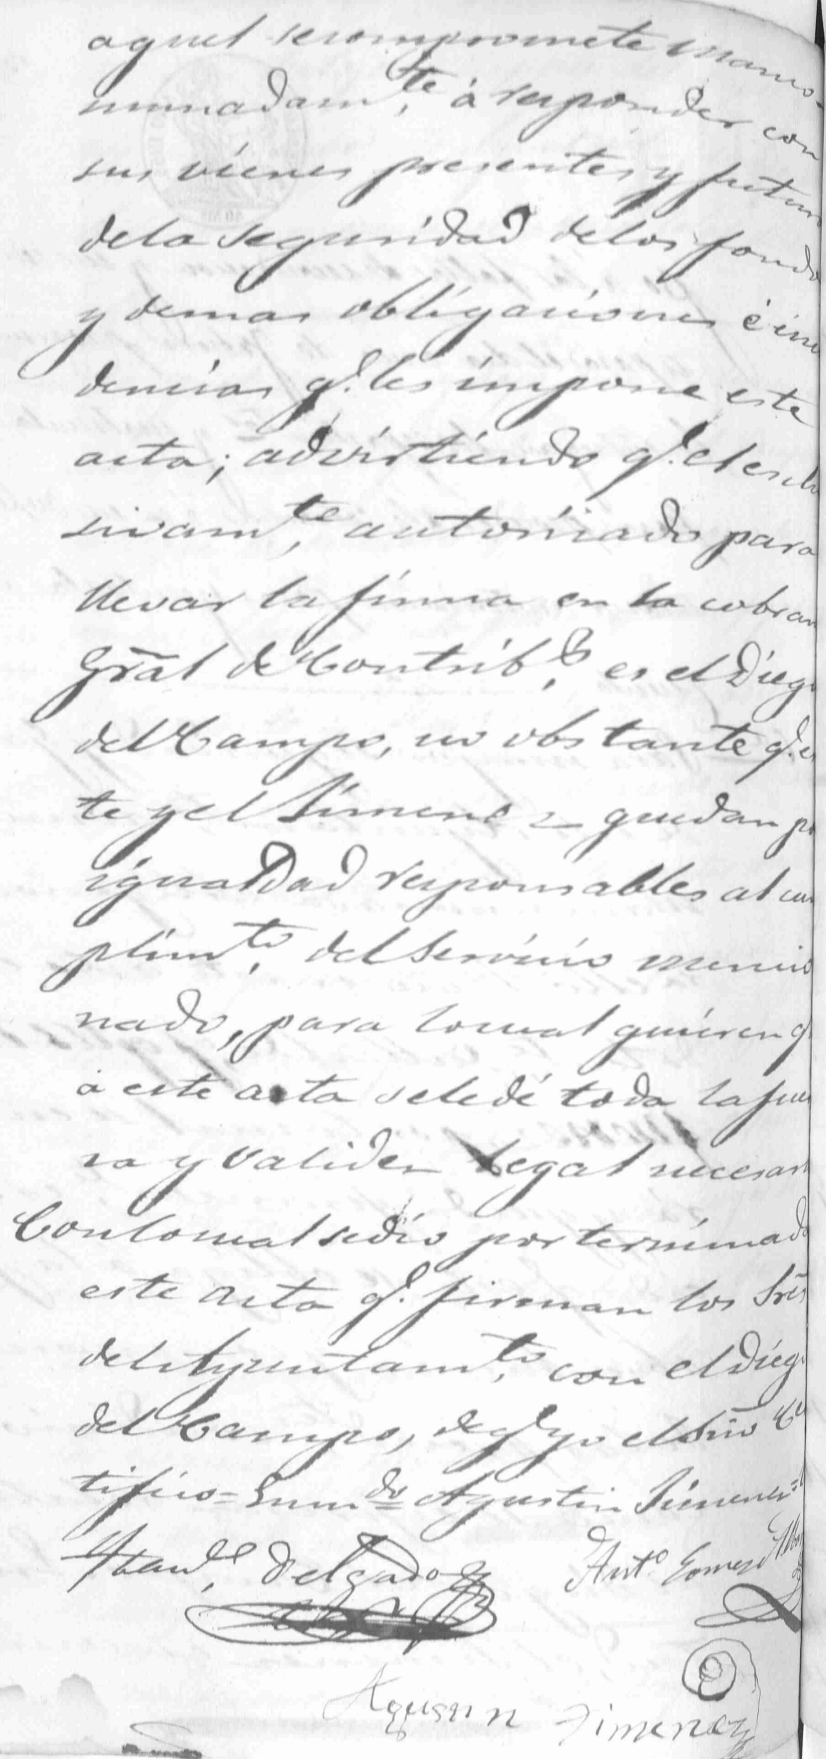 aquel secompromete manco-
munadam.te á responder con
sus vienes presentes y futuro
dela seguridad delos fondo
y demas obligaciones é inci
dencias q.e les impone este
acta; advirtiendo q.e el esclu
sivam.te autoriado para
llevar la firma en la cobran
Gral de Contrib.s es el Diego
del Campo, no obstante q.e es
te y el Jimenez quedan por
igualdad responsables al cum
plim.to del servicio mencio
nado, para locual quieren q
á este acta sele dé toda la fuer
za y validez legal necesari
Conlocual sedió por terminado
este acta q.e firman los Sres
del Ayuntam.to con el Diego
del Campo, de q.e yo el Srio Cer
tifico = Enm.do = Agustin Jimenez =
Man.l Delgado Ant.o Gomez
Agustin Jimenez